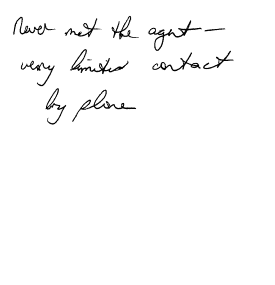 Never met the agent —
very limited contact
by phone